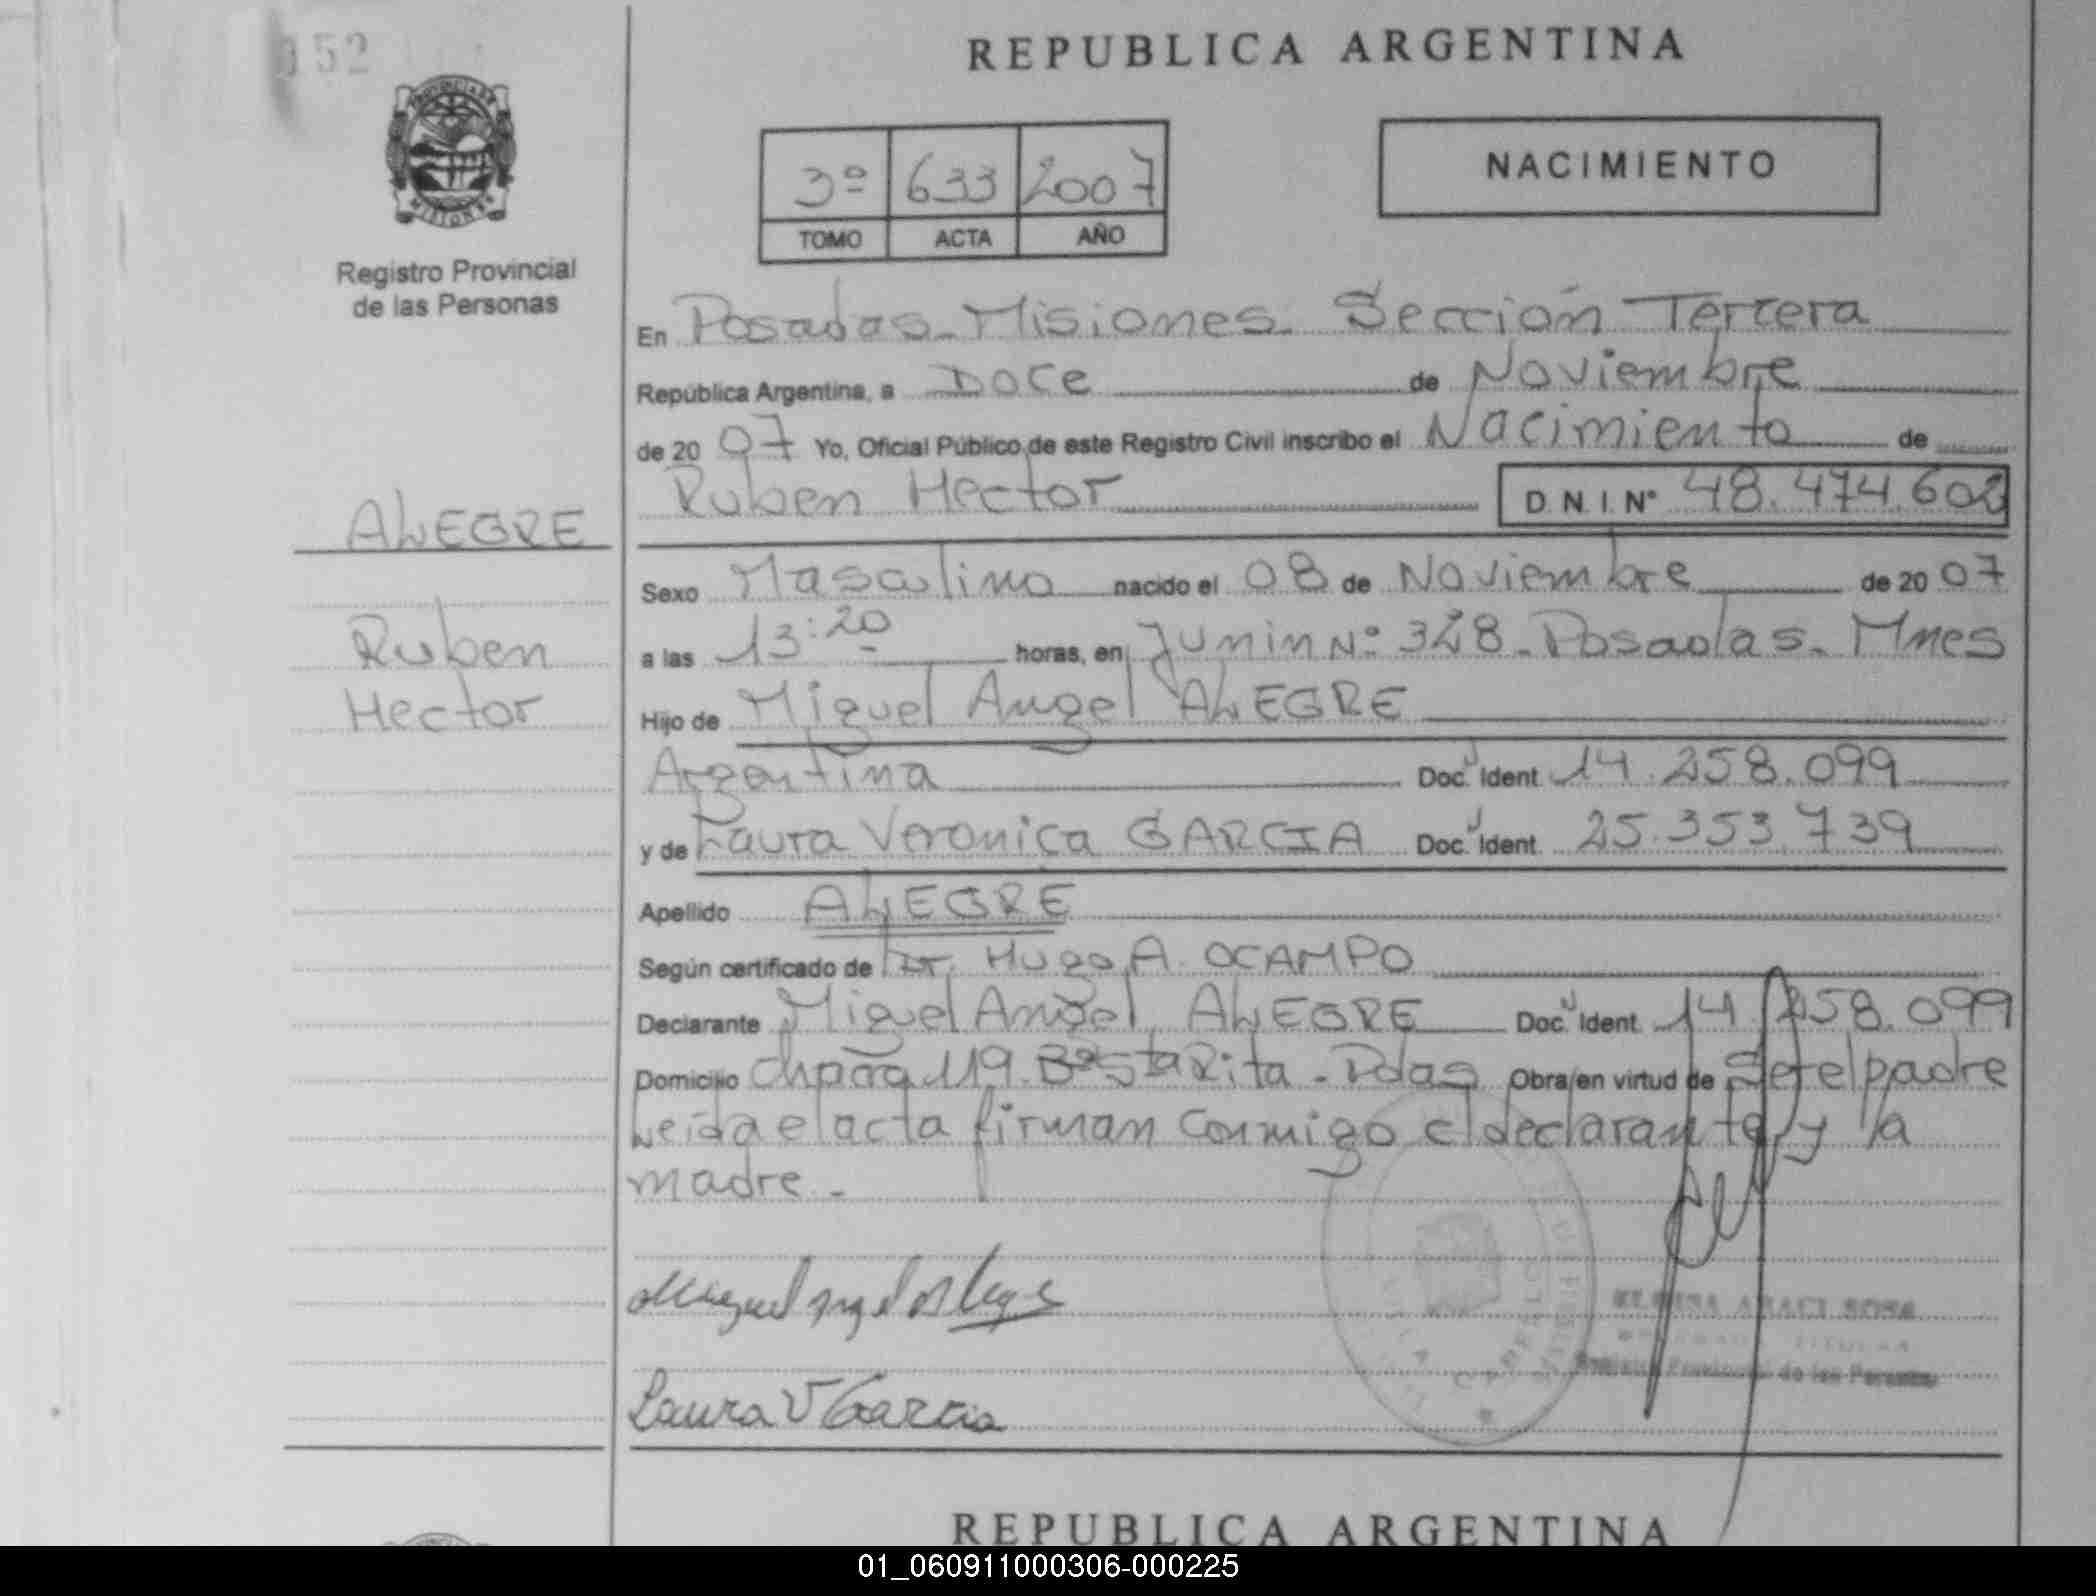 152
REPUBLICA ARGENTINA
PROVINCIA DE
MISIONES
Registro Provincial
de las Personas
3º 633 2007
TOMO ACTA AÑO
NACIMIENTO
En Posadas - Misiones. Sección Tercera
República Argentina, a Doce de Noviembre
de 20 07 Yo, Oficial Público de este Registro Civil inscribo el Nacimiento de
Ruben Hector D.N.I. Nº 48.474.602
ALEGRE
Ruben
Hector
Sexo Masculino nacido el 08 de Noviembre de 20 07
a las 13:20 horas, en Junin Nº 328 - Posadas - Mnes
Hijo de Miguel Angel ALEGRE
Argentina Doc. Ident. 14.258.099
y de Laura Veronica GARCIA Doc. Ident. 25.353.739
Apellido ALEGRE
Según certificado de Dr. Hugo A. OCAMPO
Declarante Miguel Angel ALEGRE Doc. Ident. 14.258.099
Domicilio Chacra 119. Bº Sta Rita - Pdas Obra en virtud de Ser el padre
Leida el acta firman conmigo el declarante y la
madre -
Miguel Angel Alegre
Laura V Garcia
ARACI SOSA
TITULAR
Registro Provincial de las Personas
REPUBLICA ARGENTINA
01_060911000306-000225